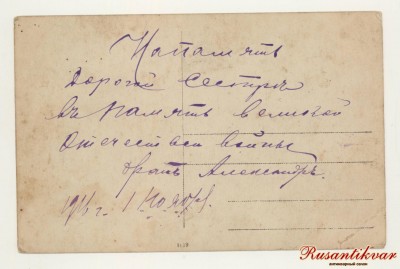 На память
дорогой сестре
въ память великой
Отечествен войны
братъ Александръ.
1916 г. 1 Ноября
Rusantikvar
антикварный салон